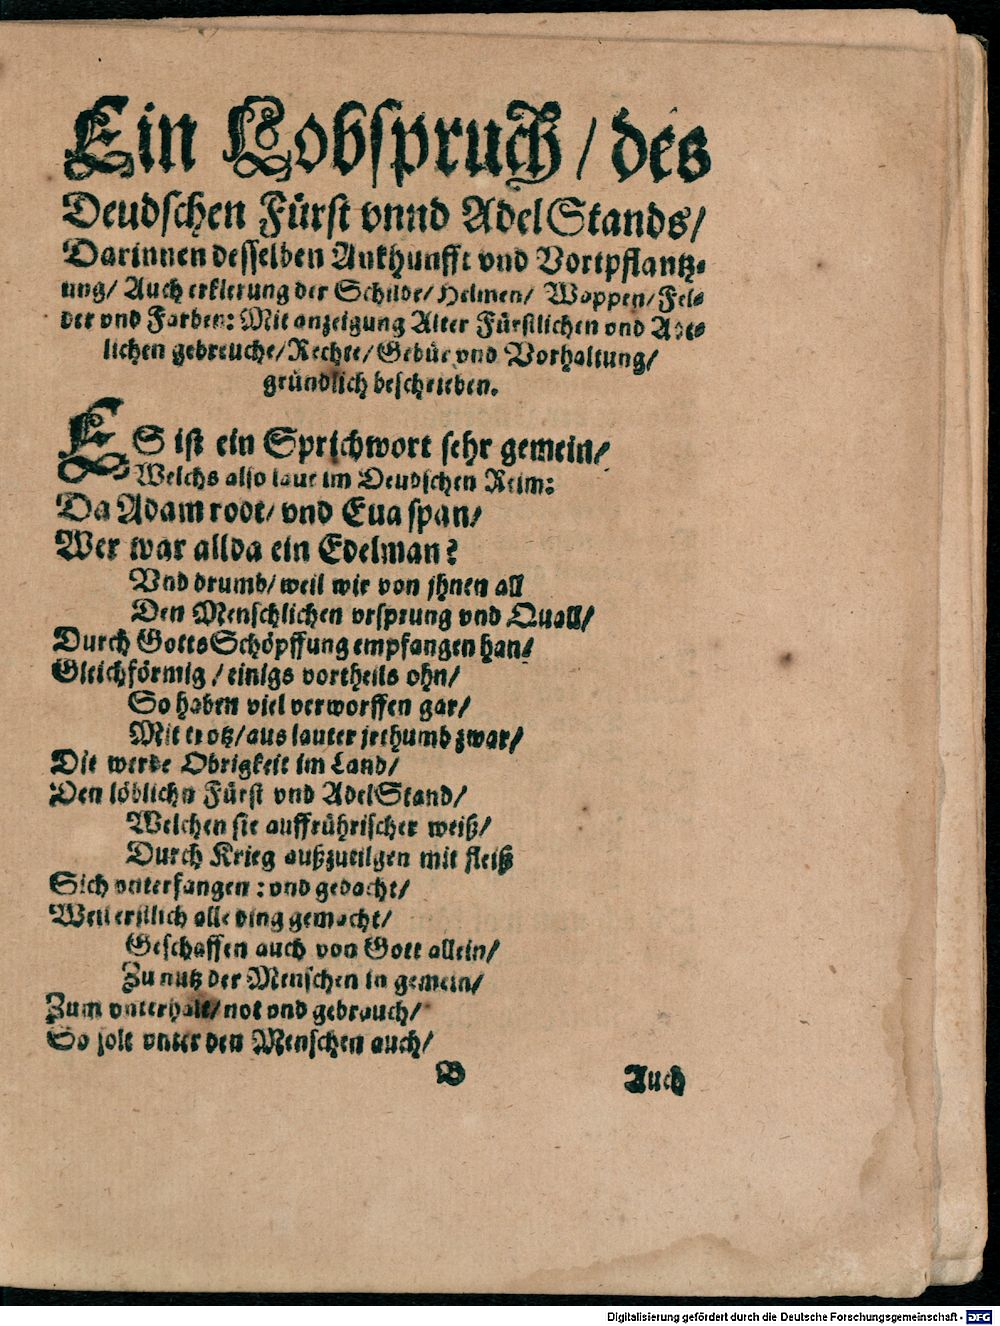 Ein Lobspruch / des
Deudschen Fürst vnnd Adel Stands /
Darinnen desselben Ankhunfft vnd Vortpflantz⸗
ung / Auch erklerung der Schilde / Helmen / Wappen / Fel⸗
der vnd Farben: Mit anzeigung Alter Fürstlichen vnd Ade⸗
lichen gebreuche / Rechte / Gebür vnd Vorhaltung /
gründlich beschrieben.
ES ist ein Sprichwort sehr gemein /
Welchs also laut im Deudschen Reim:
Da Adam rodt / vnd Eua span /
Wer war allda ein Edelman?
Vnd drumb / weil wir von jhnen all
Den Menschlichen vrsprung vnd Quall /
Durch Gotts Schöpffung empfangen han /
Gleichförmig / einigs vortheils ohn /
So haben viel verworffen gar /
Mit trotz / aus lauter jrthumb zwar /
Die werde Obrigkeit im Land /
Den löblichn Fürst vnd Adel Stand /
Welchen sie auffrührischer weiß /
Durch Krieg außzutilgen mit fleiß
Sich vnterfangen: vnd gedacht /
Weil erstlich alle ding gemacht /
Geschaffen auch von Gott allein /
Zu nutz der Menschen in gemein /
Zum vnterhalt / not vnd gebrauch /
So solt vnter den Menschen auch /
B Auch
Digitalisierung gefördert durch die Deutsche Forschungsgemeinschaft - DFG